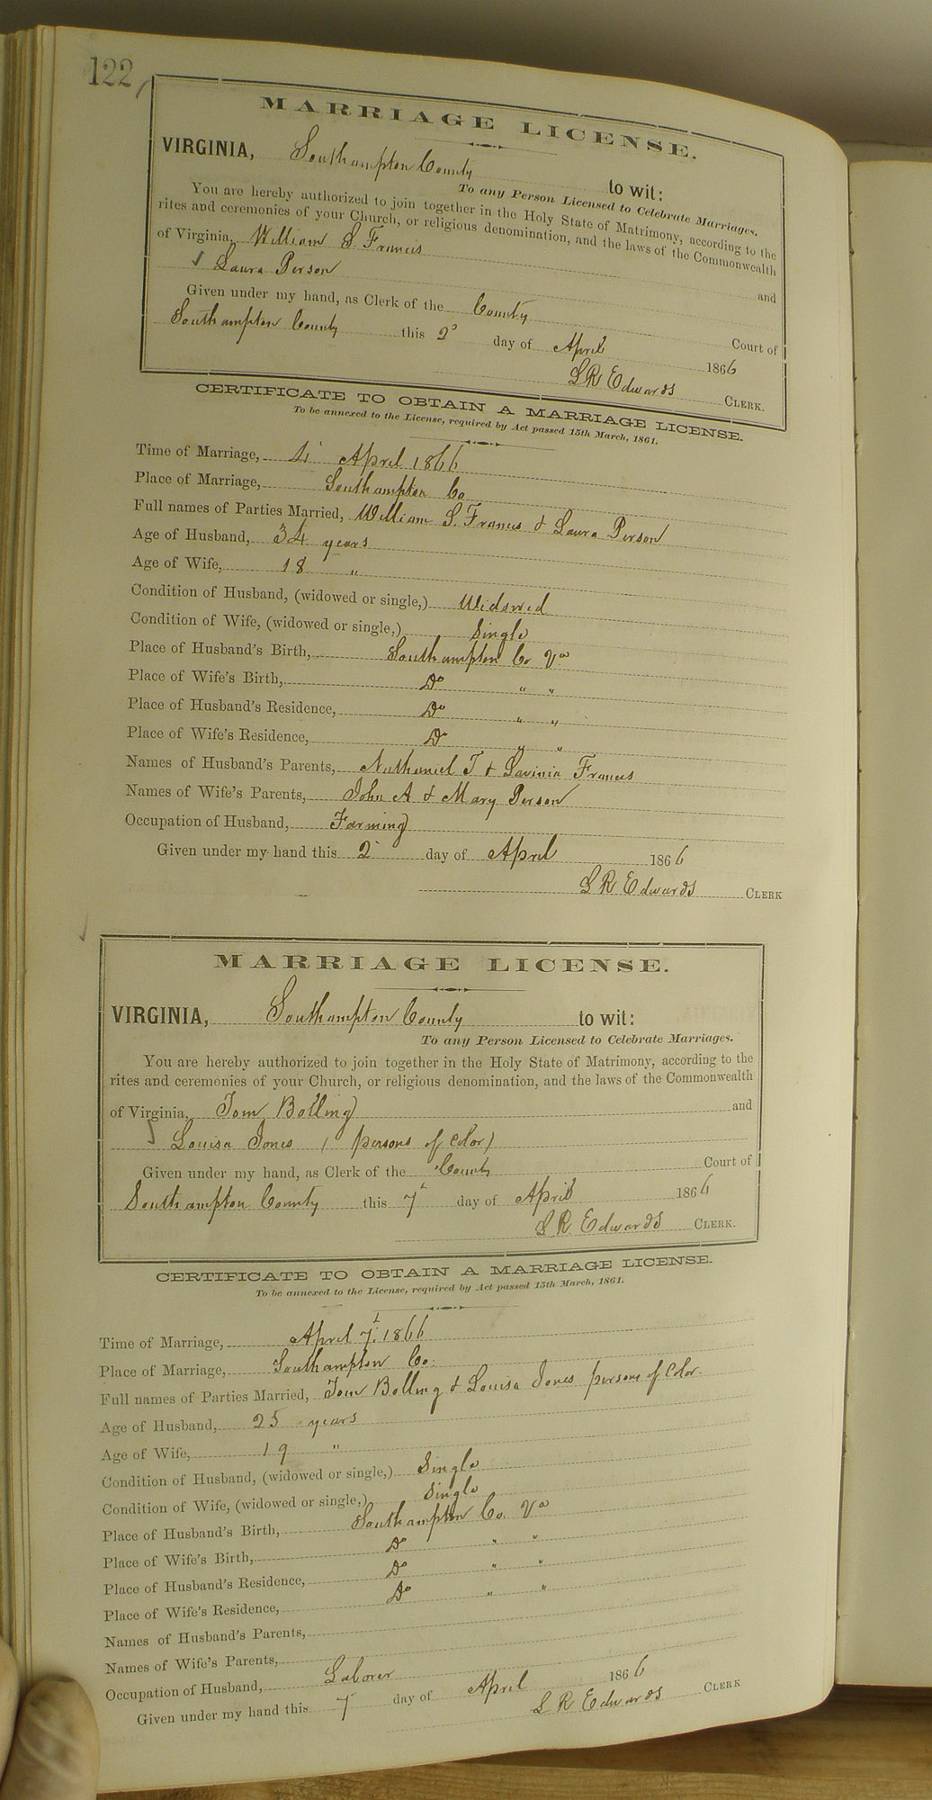 122
MARRIAGE LICENSE.
VIRGINIA, Southampton County to wit:
To any Person Licensed to Celebrate Marriages.
You are hereby authorized to join together in the Holy State of Matrimony, according to the
rites and ceremonies of your Church, or religious denomination, and the laws of the Commonwealth
of Virginia, William S. Francis and
Laura Person
Given under my hand, as Clerk of the County Court of
Southampton County this 2d day of April 1866
L R Edwards CLERK.
CERTIFICATE TO OBTAIN A MARRIAGE LICENSE.
To be annexed to the License, required by Act passed 15th March, 1861.
Time of Marriage, 4 April 1866
Place of Marriage, Southampton Co
Full names of Parties Married, William S. Francis & Laura Person
Age of Husband, 34 years
Age of Wife, 18 "
Condition of Husband, (widowed or single,) Widowed
Condition of Wife, (widowed or single,) Single
Place of Husband's Birth, Southampton Co Va
Place of Wife's Birth, Do " "
Place of Husband's Residence, Do " "
Place of Wife's Residence, Do " "
Names of Husband's Parents, Nathaniel T & Lavinia Francis
Names of Wife's Parents, John A & Mary Person
Occupation of Husband, Farming
Given under my hand this 2 day of April 1866
L R Edwards CLERK
MARRIAGE LICENSE.
VIRGINIA, Southampton County to wit:
To any Person Licensed to Celebrate Marriages.
You are hereby authorized to join together in the Holy State of Matrimony, according to the
rites and ceremonies of your Church, or religious denomination, and the laws of the Commonwealth
of Virginia, Tom Bolling and
Louisa Jones ( persons of Color)
Given under my hand, as Clerk of the County Court of
Southampton County this 7th day of April 1866
L R Edwards CLERK.
CERTIFICATE TO OBTAIN A MARRIAGE LICENSE.
To be annexed to the License, required by Act passed 15th March, 1861.
Time of Marriage, April 7th 1866
Place of Marriage, Southampton Co.
Full names of Parties Married, Tom Bolling & Louisa Jones persons of Color.
Age of Husband, 25 years
Age of Wife, 19 "
Condition of Husband, (widowed or single,) Single
Condition of Wife, (widowed or single,) Single
Place of Husband's Birth, Southampton Co. Va
Place of Wife's Birth, Do " "
Place of Husband's Residence, Do " "
Place of Wife's Residence, Do " "
Names of Husband's Parents,
Names of Wife's Parents,
Occupation of Husband, Laborer
Given under my hand this 7 day of April 1866
L R Edwards CLERK